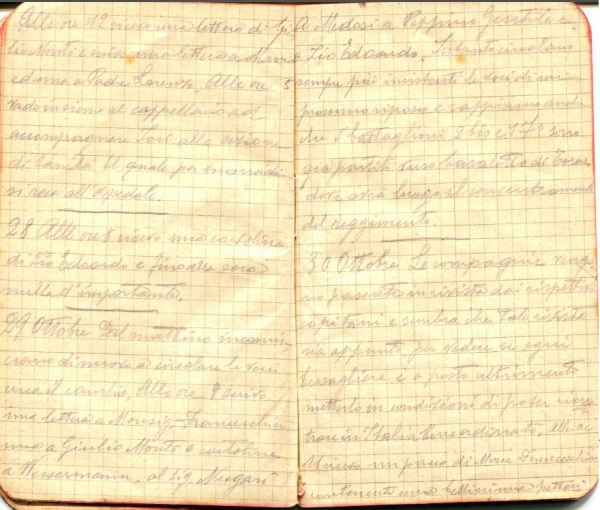 Alle ore 12 ricevo una lettera di Giu
lio Monti e scrivo una lettera a Mamma
ed una a Padre Lorenzo. Alle ore 5
vado insieme al cappellano ad
accompagnare alla sezione
di Sanità il quale per emorroidi
si reca all'ospedale.
28 Alle ore 8 ricevo una cartolina
di Zio Edoardo e fino alla sera
nulla d'importante.
29 Ottobre Dal mattino incomin
ciano di nuovo a circolare le voci
circa il cambio. Alle ore 8 scrivo
una lettera a Monsig.
una a Giulio Monti e cartoline
a Wessermann, al Sig.
A Medosi a Peppino Gentile e
a Zio Edoardo. Intanto circolano
sempre più insistenti le voci di un
prossimo riposo e sappiamo anche
che i battaglioni 2 bis e 17º sono
già partiti verso
dove avrà luogo il concentramento
del reggimento.
30 Ottobre Le compagnie vengo
no passate in rivista dai rispettivi
capitani e sembra che tale rivista
sia appunto per vedere se ogni
bersagliere è a posto altrimenti
metterlo in condizioni di poter rien
trare in Italia bene ordinato. Alle ore
11 ricevo un pacco di
contenente una bellissima